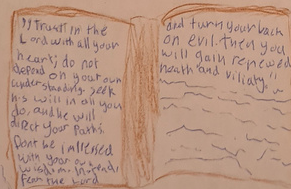 "Trust in the
Lord with all your
heart; do not
depend on your own
understanding. Seek
his will in all you
do, and he will
direct your paths.
Dont be impressed
with your own
wisdom. Instead,
fear the Lord
and turn your back
on evil. Then you
will gain renewed
health and vilialy."